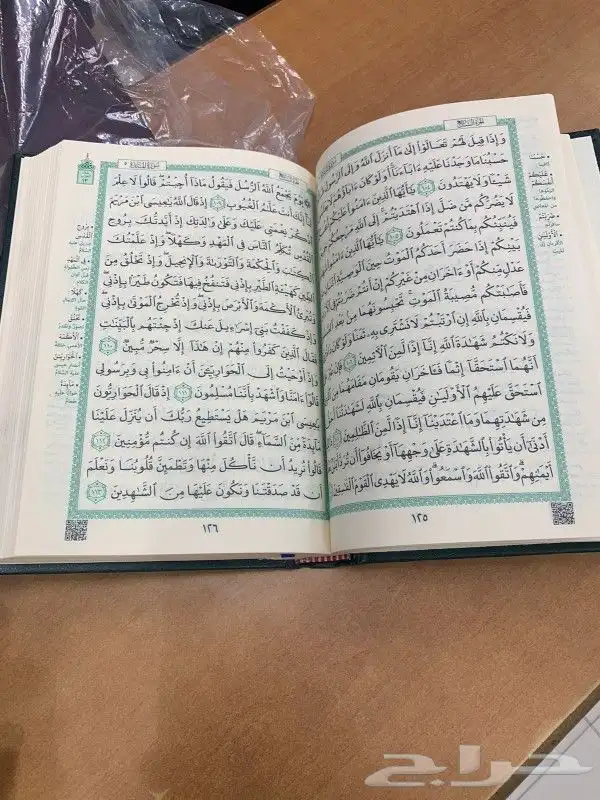 وَإِذَا قِيلَ لَهُمْ تَعَالَوْا۟ إِلَىٰ مَآ أَنزَلَ ٱللَّهُ وَإِلَى ٱلرَّسُولِ
حَسْبُنَا مَا وَجَدْنَا عَلَيْهِ ءَابَآءَنَآ أَوَلَوْ كَانَ ءَابَآؤُهُمْ لَا
شَيْـًٔا وَلَا يَهْتَدُونَ ١٠٤ يَـٰٓأَيُّهَا ٱلَّذِينَ ءَامَنُوا۟ عَلَيْكُمْ
لَا يَضُرُّكُم مَّن ضَلَّ إِذَا ٱهْتَدَيْتُمْ إِلَى ٱللَّهِ مَرْجِعُكُمْ
فَيُنَبِّئُكُم بِمَا كُنتُمْ تَعْمَلُونَ ١٠٥ يَـٰٓأَيُّهَا ٱلَّذِينَ ءَامَنُوا۟
بَيْنِكُمْ إِذَا حَضَرَ أَحَدَكُمُ ٱلْمَوْتُ حِينَ ٱلْوَصِيَّةِ
عَدْلٍ مِّنكُمْ أَوْ ءَاخَرَانِ مِنْ غَيْرِكُمْ إِنْ أَنتُمْ ضَرَبْتُمْ فِى
فَأَصَـٰبَتْكُم مُّصِيبَةُ ٱلْمَوْتِ تَحْبِسُونَهُمَا مِنۢ بَعْدِ
فَيُقْسِمَانِ بِٱللَّهِ إِنِ ٱرْتَبْتُمْ لَا نَشْتَرِى بِهِۦ
وَلَا نَكْتُمُ شَهَـٰدَةَ ٱللَّهِ إِنَّآ إِذًا لَّمِنَ ٱلْـَٔاثِمِينَ
أَنَّهُمَا ٱسْتَحَقَّآ إِثْمًا فَـَٔاخَرَانِ يَقُومَانِ مَقَامَهُمَا مِنَ
ٱسْتَحَقَّ عَلَيْهِمُ ٱلْأَوْلَيَـٰنِ فَيُقْسِمَانِ بِٱللَّهِ لَشَهَـٰدَتُنَآ
مِن شَهَـٰدَتِهِمَا وَمَا ٱعْتَدَيْنَآ إِنَّآ إِذًا لَّمِنَ ٱلظَّـٰلِمِينَ
أَدْنَىٰٓ أَن يَأْتُوا۟ بِٱلشَّهَـٰدَةِ عَلَىٰ وَجْهِهَآ أَوْ يَخَافُوٓا۟ أَن تُرَدَّ
أَيْمَـٰنِهِمْ وَٱتَّقُوا۟ ٱللَّهَ وَٱسْمَعُوا۟ وَٱللَّهُ لَا يَهْدِى ٱلْقَوْمَ ٱلْفَـٰسِقِينَ
١٢٥
يَوْمَ يَجْمَعُ ٱللَّهُ ٱلرُّسُلَ فَيَقُولُ مَاذَآ أُجِبْتُمْ قَالُوا۟ لَا عِلْمَ
أَنتَ عَلَّـٰمُ ٱلْغُيُوبِ ١٠٩ إِذْ قَالَ ٱللَّهُ يَـٰعِيسَى ٱبْنَ مَرْيَمَ
ٱذْكُرْ نِعْمَتِى عَلَيْكَ وَعَلَىٰ وَٰلِدَتِكَ إِذْ أَيَّدتُّكَ بِرُوحِ
ٱلْقُدُسِ تُكَلِّمُ ٱلنَّاسَ فِى ٱلْمَهْدِ وَكَهْلًا وَإِذْ عَلَّمْتُكَ
ٱلْكِتَـٰبَ وَٱلْحِكْمَةَ وَٱلتَّوْرَىٰةَ وَٱلْإِنجِيلَ وَإِذْ تَخْلُقُ مِنَ
ٱلطِّينِ كَهَيْـَٔةِ ٱلطَّيْرِ بِإِذْنِى فَتَنفُخُ فِيهَا فَتَكُونُ طَيْرًۢا بِإِذْنِى
وَتُبْرِئُ ٱلْأَكْمَهَ وَٱلْأَبْرَصَ بِإِذْنِى وَإِذْ تُخْرِجُ ٱلْمَوْتَىٰ بِإِذْنِى
وَإِذْ كَفَفْتُ بَنِىٓ إِسْرَٰٓءِيلَ عَنكَ إِذْ جِئْتَهُم بِٱلْبَيِّنَـٰتِ
فَقَالَ ٱلَّذِينَ كَفَرُوا۟ مِنْهُمْ إِنْ هَـٰذَآ إِلَّا سِحْرٌ مُّبِينٌ ١١٠
وَإِذْ أَوْحَيْتُ إِلَى ٱلْحَوَارِيِّـۧنَ أَنْ ءَامِنُوا۟ بِى وَبِرَسُولِى
قَالُوٓا۟ ءَامَنَّا وَٱشْهَدْ بِأَنَّنَا مُسْلِمُونَ ١١١ إِذْ قَالَ ٱلْحَوَارِيُّونَ
يَـٰعِيسَى ٱبْنَ مَرْيَمَ هَلْ يَسْتَطِيعُ رَبُّكَ أَن يُنَزِّلَ عَلَيْنَا
مَآئِدَةً مِّنَ ٱلسَّمَآءِ قَالَ ٱتَّقُوا۟ ٱللَّهَ إِن كُنتُم مُّؤْمِنِينَ ١١٢
قَالُوا۟ نُرِيدُ أَن نَّأْكُلَ مِنْهَا وَتَطْمَئِنَّ قُلُوبُنَا وَنَعْلَمَ
أَن قَدْ صَدَقْتَنَا وَنَكُونَ عَلَيْهَا مِنَ ٱلشَّـٰهِدِينَ ١١٣
١٢٦
حراج